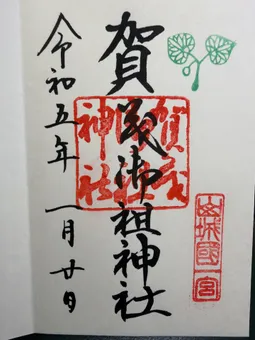 山城國一宮
賀茂御祖神社
賀茂
御祖
神社
令和五年 一月廿日